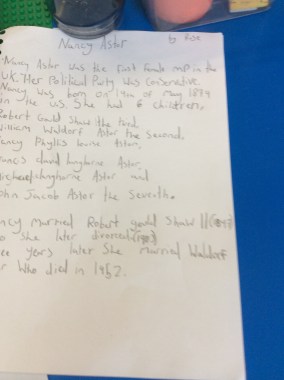 Nancy Astor
by Rose
Nancy Astor was the first female MP in the
UK. Her Political Party was Conservative.
Nancy was born on 19th of May 1879
in the US. She had 6 children,
Robert Gould Shaw the third,
William Waldorf Astor the second,
ancy Phyllis louise Astor,
ancis david langhorne Astor,
ichael langhorne Astor and
ohn Jacob Astor the seventh.
ncy married Robert gould Shaw II
o she later divorced
ee years later she married Waldorf
r who died in 1952.